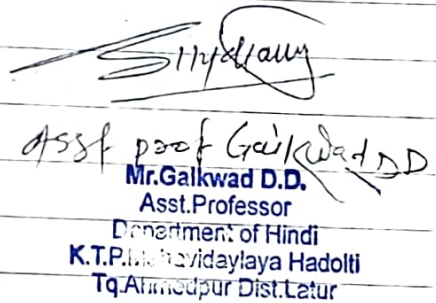 Asst prof Gaikwad DD
Mr.Gaikwad D.D.
Asst.Professor
Department of Hindi
K.T.P. Mahavidaylaya Hadolti
Tq.Ahmedpur Dist.Latur